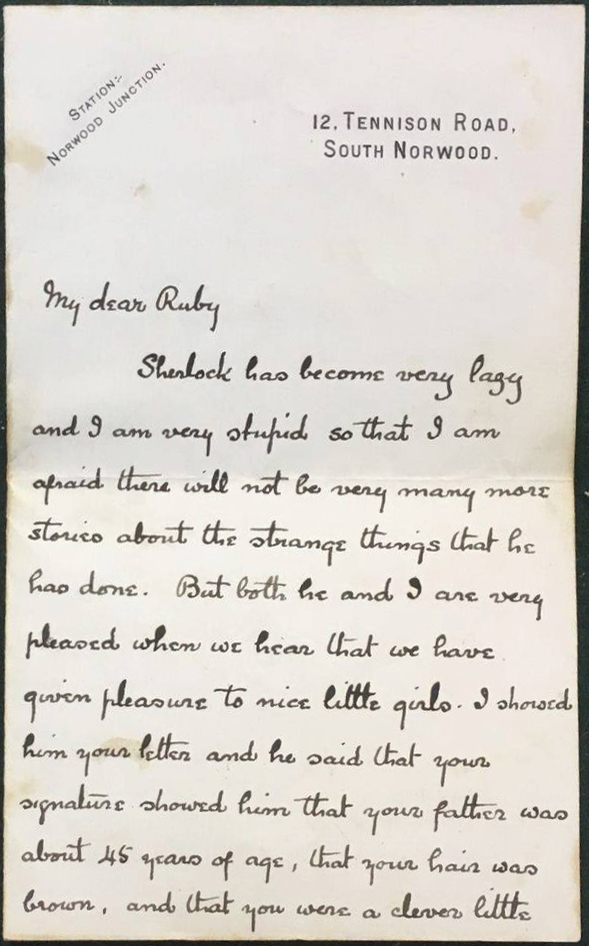 STATION:-
NORWOOD JUNCTION.
12, TENNISON ROAD,
SOUTH NORWOOD.
My dear Ruby
Sherlock has become very lazy
and I am very stupid so that I am
afraid there will not be very many more
stories about the strange things that he
has done. But both he and I are very
pleased when we hear that we have
given pleasure to nice little girls. I showed
him your letter and he said that your
signature showed him that your father was
about 45 years of age, that your hair was
brown, and that you were a clever little